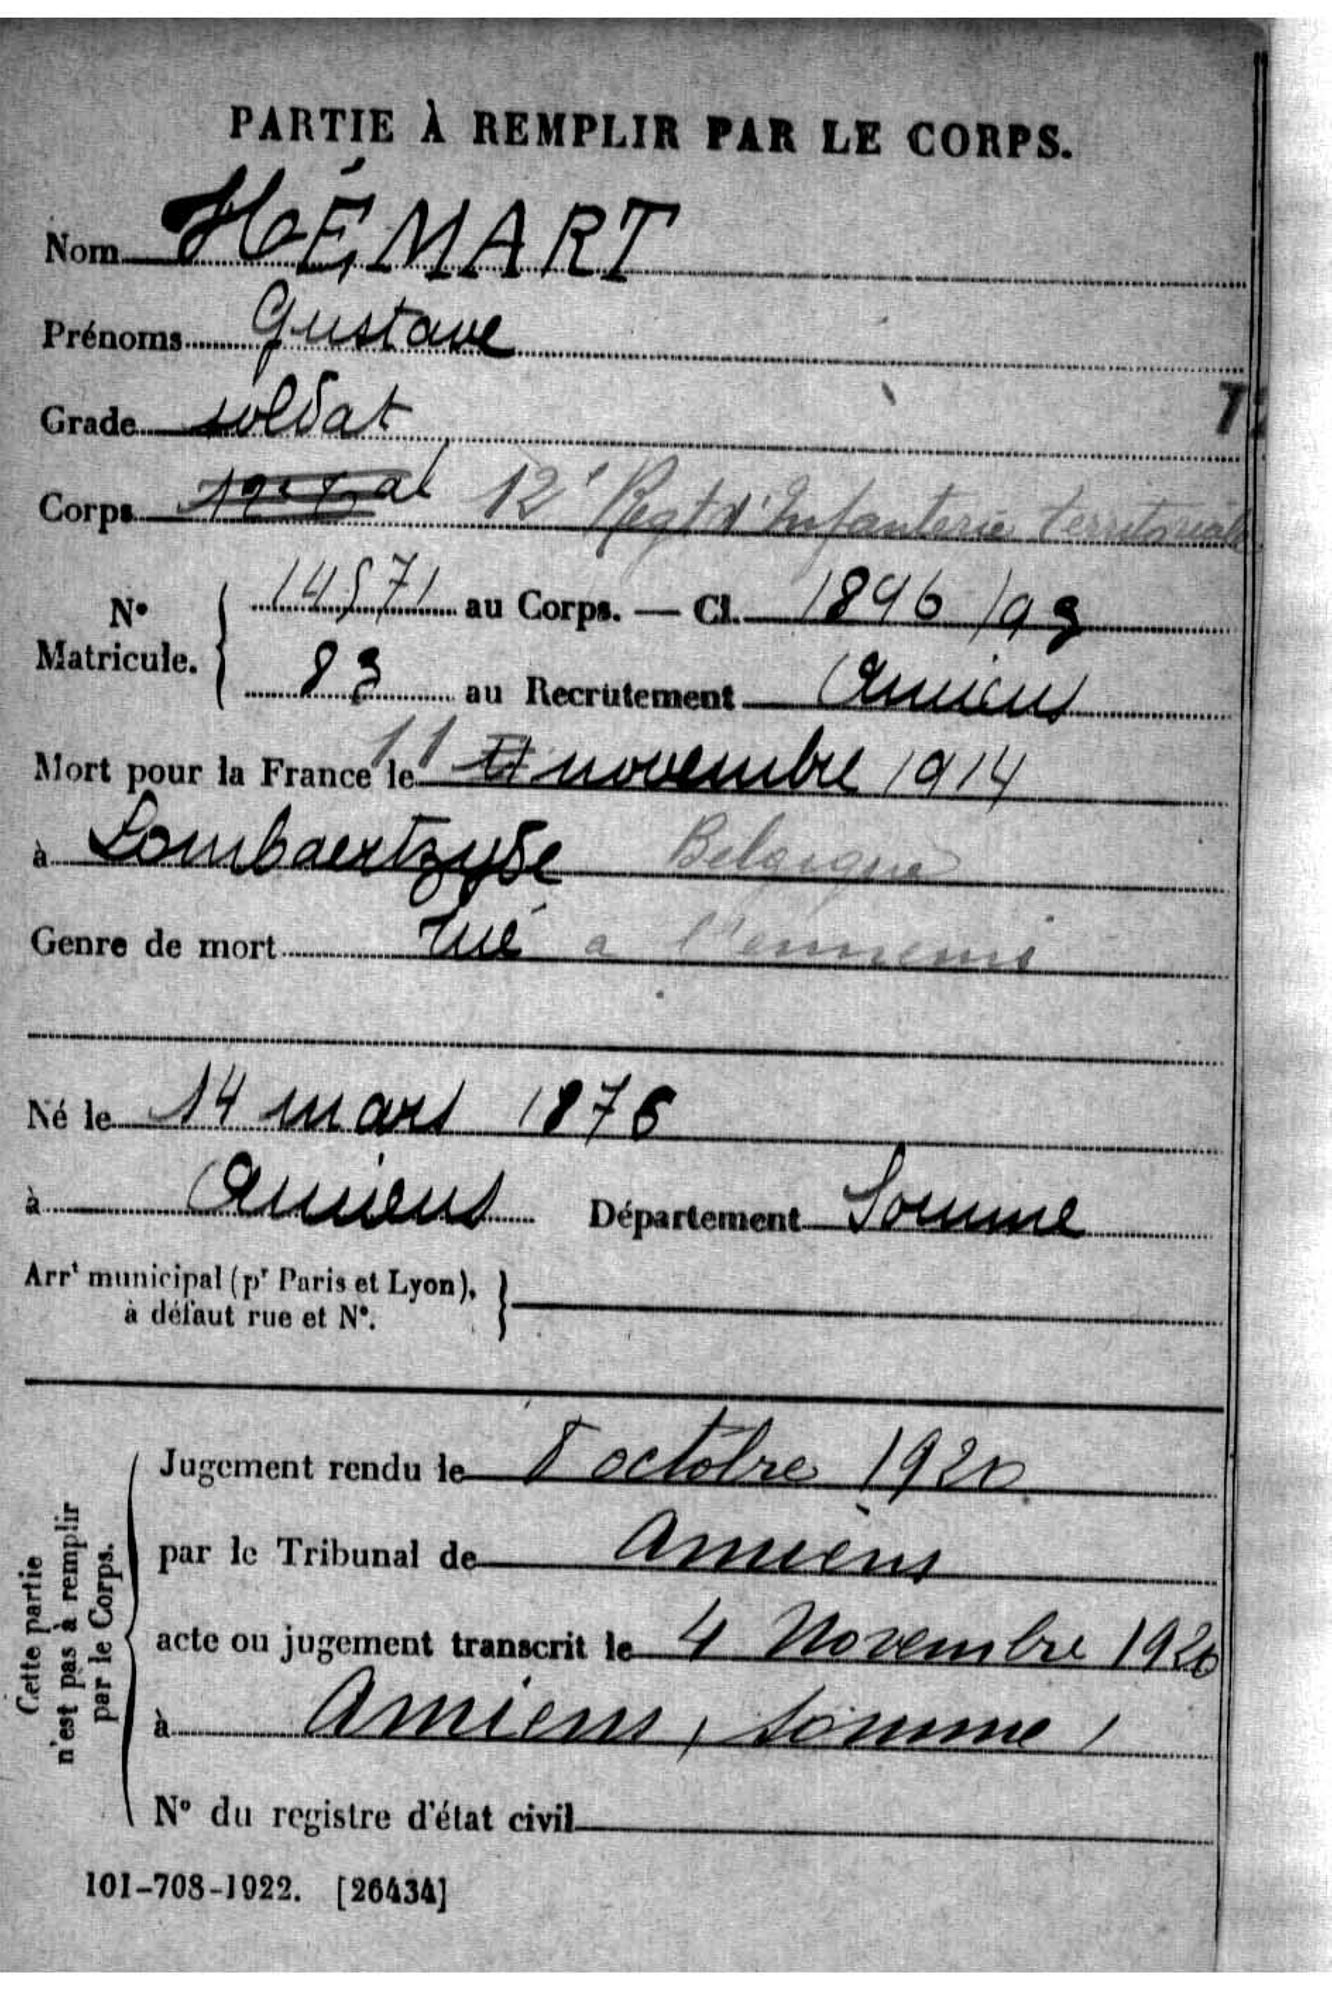 PARTIE À REMPLIR PAR LE CORPS.
Nom HÉMART
Prénoms Gustave
Grade soldat
Corps 12e Regt d'Infanterie territoriale
N° Matricule. 14571 au Corps. — Cl. 1896
83 au Recrutement Amiens
Mort pour la France le 11 novembre 1914
à Lombaertzyde Belgique
Genre de mort tué a l'ennemi
Né le 14 mars 1876
à Amiens Département Somme
Arrt municipal (pr Paris et Lyon),
à défaut rue et N°.
Cette partie
n'est pas à remplir
par le Corps.
Jugement rendu le 8 octobre 1920
par le Tribunal de Amiens
acte ou jugement transcrit le 4 Novembre 1920
à Amiens, Somme,
N° du registre d'état civil
101-708-1922. [26434]